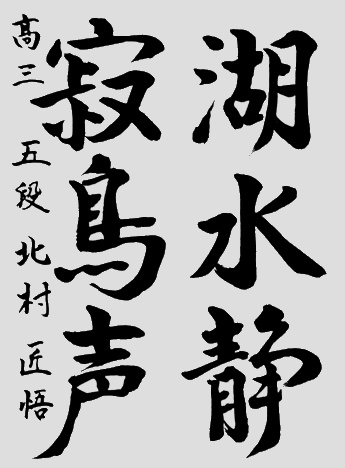 湖水静
寂鳥声
高三 五段 北村 匠悟